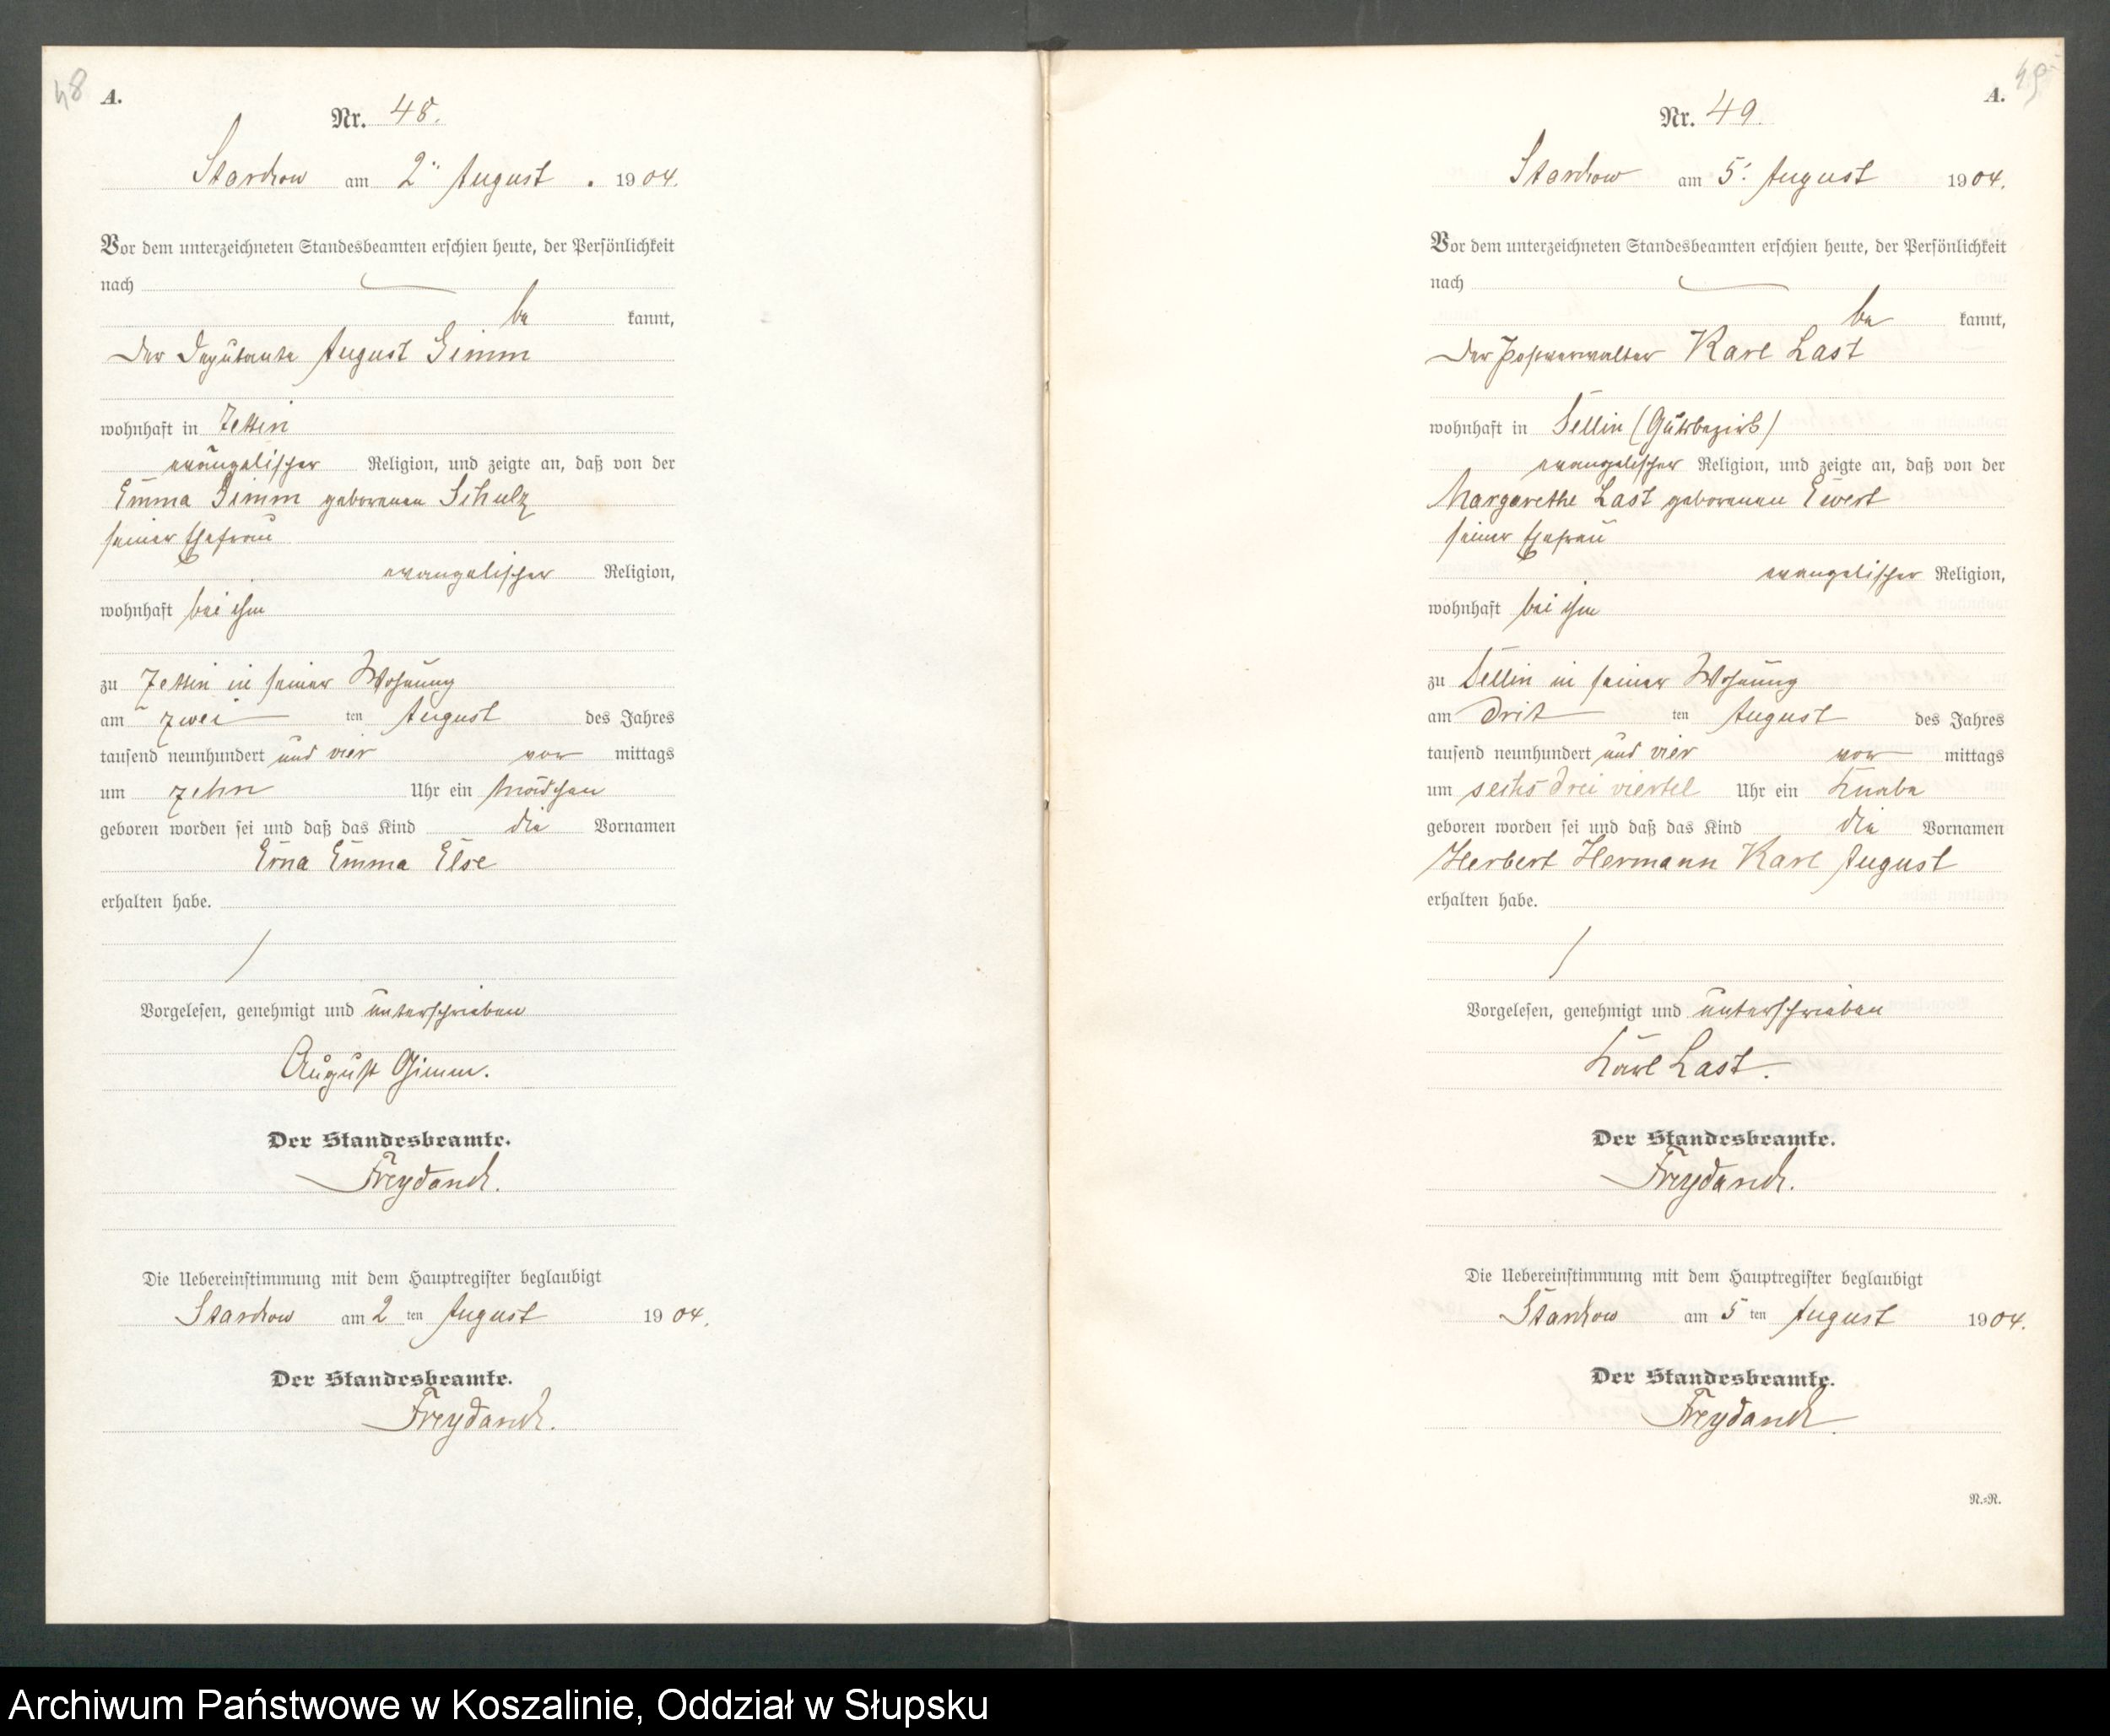 48
A.
Nr. 48.
Starkow am 2ten August. 1904.
Vor dem unterzeichneten Standesbeamten erschien heute, der Persönlichkeit
nach
be kannt,
der Deputante August Gimm
wohnhaft in Zettin
evangelischer Religion, und zeigte an, daß von der
Emma Gimm geborenen Schulz
seiner Ehefrau
evangelischer Religion,
wohnhaft bei ihm
zu Zettin in seiner Wohnung
am zwei ten August des Jahres
tausend neunhundert und vier vor mittags
um zehn Uhr ein Mädchen
geboren worden sei und daß das Kind die Vornamen
Erna Emma Else
erhalten habe.
Vorgelesen, genehmigt und unterschrieben
August Gimm.
Der Standesbeamte.
Freydanck.
Die Uebereinstimmung mit dem Hauptregister beglaubigt
Starkow am 2 ten August 1904.
Der Standesbeamte.
Freydanck.
49
A.
Nr. 49.
Starkow am 5. August 1904.
Vor dem unterzeichneten Standesbeamten erschien heute, der Persönlichkeit
nach
be kannt,
der Postverwalter Karl Last
wohnhaft in Sellin (Gutsbezirk)
evangelischer Religion, und zeigte an, daß von der
Margarethe Last geborenen Ewert
seiner Ehefrau
evangelischer Religion,
wohnhaft bei ihm
zu Sellin in seiner Wohnung
am drit ten August des Jahres
tausend neunhundert und vier vor mittags
um sechs drei viertel Uhr ein Knabe
geboren worden sei und daß das Kind die Vornamen
Herbert Hermann Karl August
erhalten habe.
Vorgelesen, genehmigt und unterschrieben
Karl Last.
Der Standesbeamte.
Freydanck.
Die Uebereinstimmung mit dem Hauptregister beglaubigt
Starkow am 5 ten August 1904.
Der Standesbeamte.
Freydanck.
N.=R.
Archiwum Państwowe w Koszalinie, Oddział w Słupsku